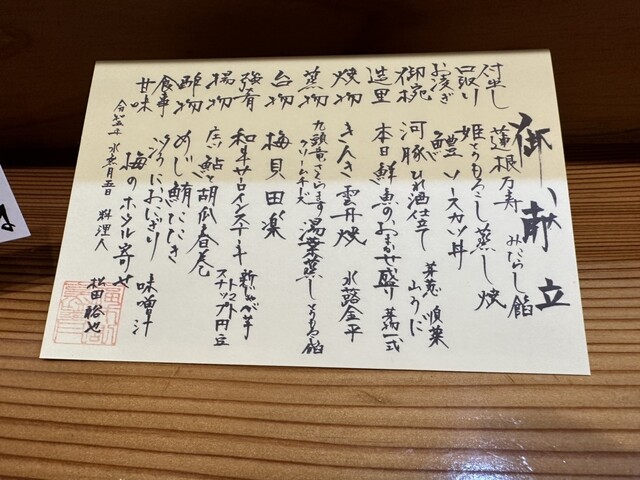 御献立
付出し 蓮根万寿 みたらし餡
口取り 姫とうもろこし蒸し焼
お凌ぎ 鱧ソースカツ丼
御椀 河豚ひれ酒仕立 芽葱 順菜 山うに
造里 本日鮮魚のおまかせ盛り 芽一式
焼物 きんき雲丹焼 水蕗金平
蒸物 九頭竜さくらます湯葉蒸し クリームチーズ とうもろこし餡
台物 梅貝田楽
強肴 和牛サロインステーキ 新じゃが芋 トマト スナップ円豆
揚物 広鮎胡瓜春巻
酢物 めじ鮪たたき
食事 焼うにおにぎり 味噌汁
甘味 梅のホワル寄せ
令和 年 水無月 日 料理人 松田裕也